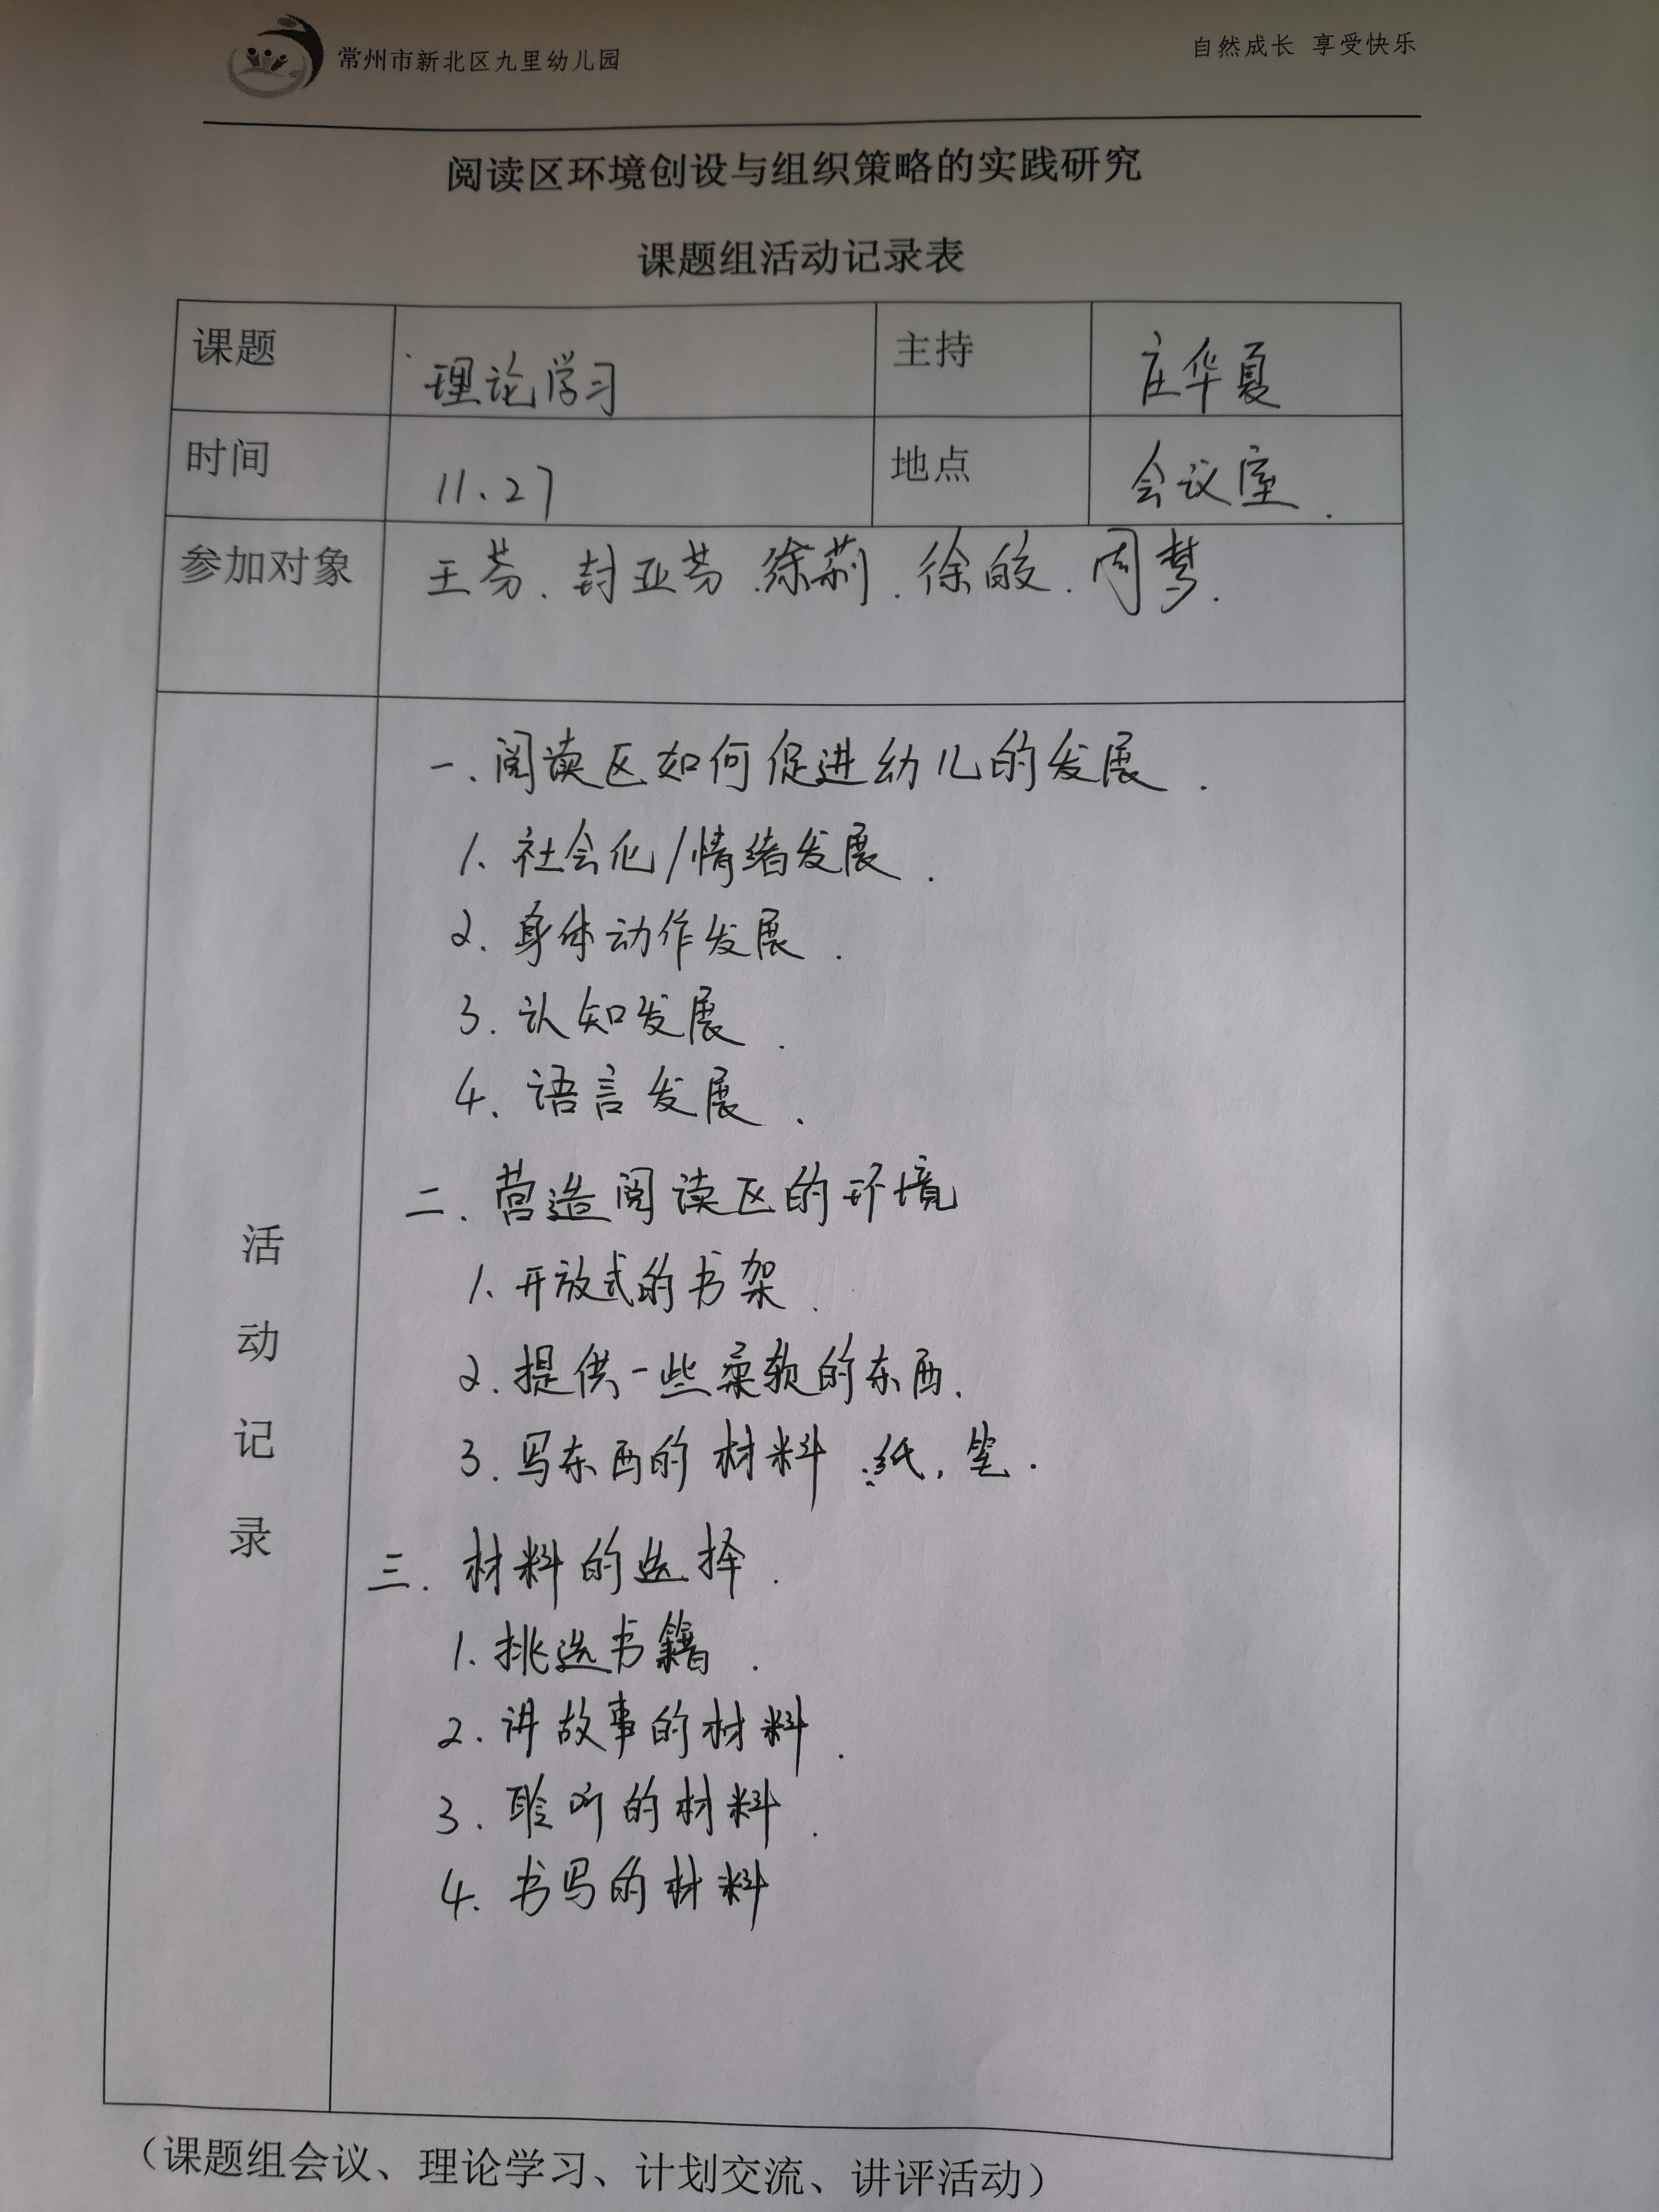 常州市新北区九里幼儿园 自然成长 享受快乐
阅读区环境创设与组织策略的实践研究
课题组活动记录表
课题 理论学习 主持 庄华夏
时间 11.27 地点 会议室.
参加对象 王芬、封亚芬.徐莉.徐皎.周梦.
活动记录
一.阅读区如何促进幼儿的发展.
1.社会化/情绪发展.
2.身体动作发展.
3.认知发展.
4.语言发展.
二.营造阅读区的环境
1.开放式的书架.
2.提供一些柔软的东西.
3.写东西的材料:纸,笔.
三.材料的选择.
1.挑选书籍.
2.讲故事的材料.
3.聆听的材料.
4.书写的材料
（课题组会议、理论学习、计划交流、讲评活动）